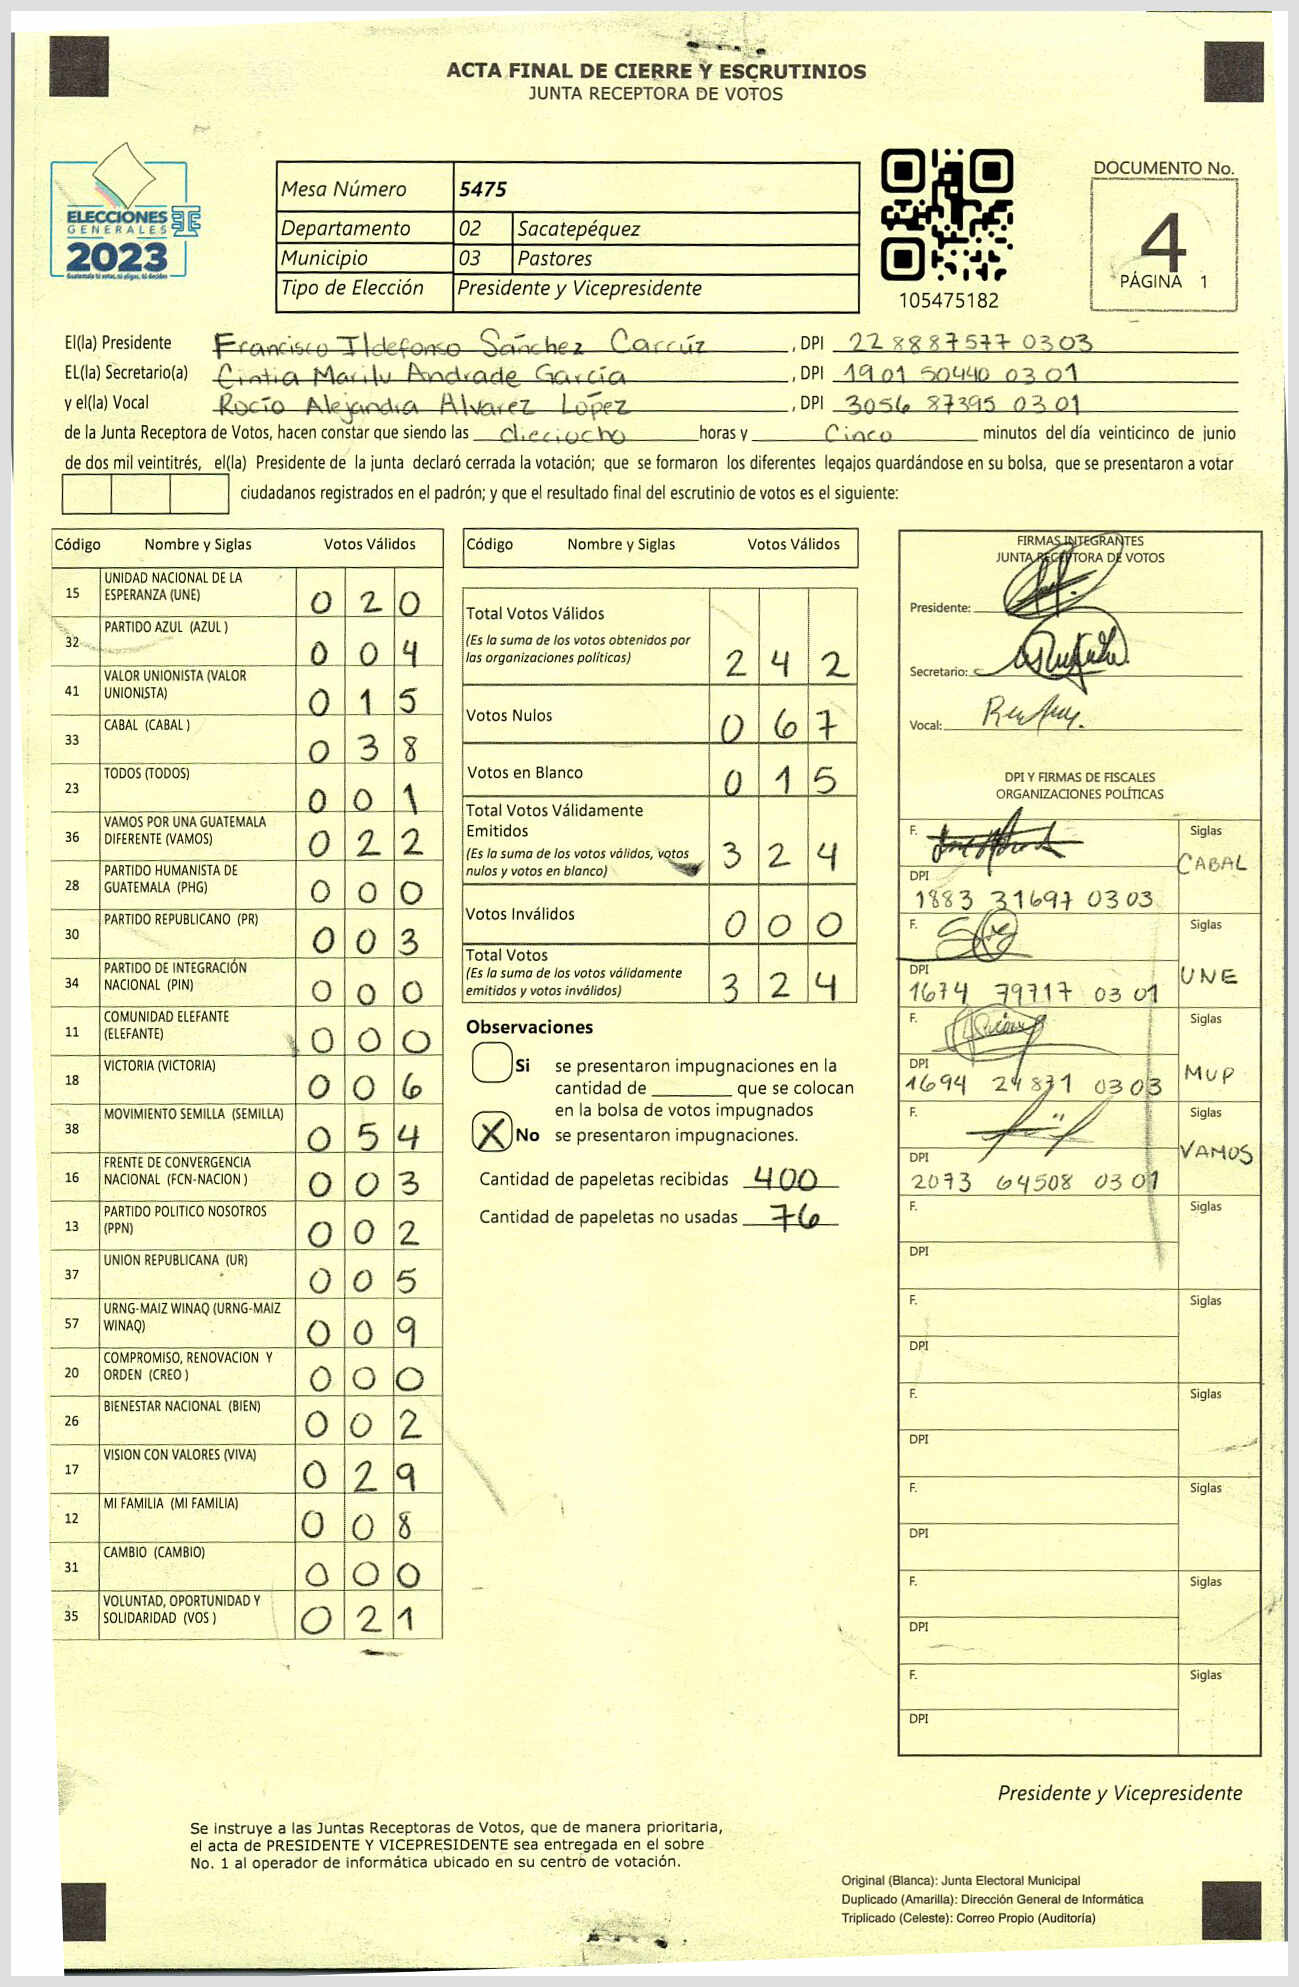 ACTA FINAL DE CIERRE Y ESCRUTINIOS
JUNTA RECEPTORA DE VOTOS
ELECCIONES
GENERALES
2023
Guatemala tú votas, tú eliges, tú decides
Mesa Número 5475
Departamento 02 Sacatepéquez
Municipio 03 Pastores
Tipo de Elección Presidente y Vicepresidente
105475182
DOCUMENTO No.
4
PÁGINA 1
El(la) Presidente Francisco Ildefonso Sánchez Carcúz, DPI 22 8887577 0303
EL(la) Secretario(a) Cintia Marilu Andrade García, DPI 1901 50440 03 01
y el(la) Vocal Rocío Alejandra Alvarez López, DPI 3056 87395 03 01
de la Junta Receptora de Votos, hacen constar que siendo las dieciocho horas y Cinco minutos del día veinticinco de junio
de dos mil veintitrés, el(la) Presidente de la junta declaró cerrada la votación; que se formaron los diferentes legajos guardándose en su bolsa, que se presentaron a votar
ciudadanos registrados en el padrón; y que el resultado final del escrutinio de votos es el siguiente:
Código Nombre y Siglas Votos Válidos
15 UNIDAD NACIONAL DE LA
ESPERANZA (UNE) 0 2 0
32 PARTIDO AZUL (AZUL ) 0 0 4
41 VALOR UNIONISTA (VALOR
UNIONISTA) 0 1 5
33 CABAL (CABAL ) 0 3 8
23 TODOS (TODOS) 0 0 1
36 VAMOS POR UNA GUATEMALA
DIFERENTE (VAMOS) 0 2 2
28 PARTIDO HUMANISTA DE
GUATEMALA (PHG) 0 0 0
30 PARTIDO REPUBLICANO (PR) 0 0 3
34 PARTIDO DE INTEGRACIÓN
NACIONAL (PIN) 0 0 0
11 COMUNIDAD ELEFANTE
(ELEFANTE) 0 0 0
18 VICTORIA (VICTORIA) 0 0 6
38 MOVIMIENTO SEMILLA (SEMILLA) 0 5 4
16 FRENTE DE CONVERGENCIA
NACIONAL (FCN-NACION ) 0 0 3
13 PARTIDO POLITICO NOSOTROS
(PPN) 0 0 2
37 UNION REPUBLICANA (UR) 0 0 5
57 URNG-MAIZ WINAQ (URNG-MAIZ
WINAQ) 0 0 9
20 COMPROMISO, RENOVACION Y
ORDEN (CREO ) 0 0 0
26 BIENESTAR NACIONAL (BIEN) 0 0 2
17 VISION CON VALORES (VIVA) 0 2 9
12 MI FAMILIA (MI FAMILIA) 0 0 8
31 CAMBIO (CAMBIO) 0 0 0
35 VOLUNTAD, OPORTUNIDAD Y
SOLIDARIDAD (VOS ) 0 2 1
Código Nombre y Siglas Votos Válidos
Total Votos Válidos
(Es la suma de los votos obtenidos por
las organizaciones políticas) 2 4 2
Votos Nulos 0 6 7
Votos en Blanco 0 1 5
Total Votos Válidamente
Emitidos
(Es la suma de los votos válidos, votos
nulos y votos en blanco) 3 2 4
Votos Inválidos 0 0 0
Total Votos
(Es la suma de los votos válidamente
emitidos y votos inválidos) 3 2 4
Observaciones
Si se presentaron impugnaciones en la
cantidad de ________ que se colocan
en la bolsa de votos impugnados
X No se presentaron impugnaciones.
Cantidad de papeletas recibidas 400
Cantidad de papeletas no usadas 76
FIRMAS INTEGRANTES
JUNTA RECEPTORA DE VOTOS
Presidente:
Secretario:
Vocal:
DPI Y FIRMAS DE FISCALES
ORGANIZACIONES POLÍTICAS
F. Siglas
CABAL
DPI
1883 31697 0303
F. Siglas
UNE
DPI
1674 79717 03 01
F. Siglas
MUP
DPI
1694 24831 0303
F. Siglas
VAMOS
DPI
2073 64508 0301
F. Siglas
DPI
F. Siglas
DPI
F. Siglas
DPI
F. Siglas
DPI
F. Siglas
DPI
F. Siglas
DPI
Presidente y Vicepresidente
Se instruye a las Juntas Receptoras de Votos, que de manera prioritaria,
el acta de PRESIDENTE Y VICEPRESIDENTE sea entregada en el sobre
No. 1 al operador de informática ubicado en su centro de votación.
Original (Blanca): Junta Electoral Municipal
Duplicado (Amarilla): Dirección General de Informática
Triplicado (Celeste): Correo Propio (Auditoría)